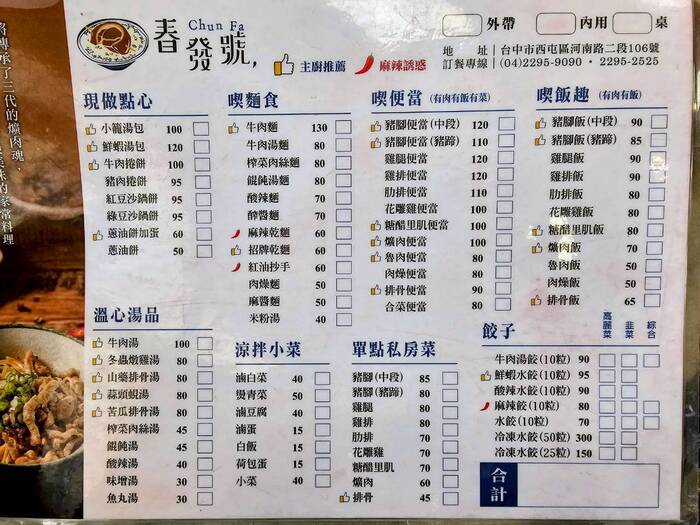 將傳承了三代的爌肉魂、
家常料理
Chun Fa
春發號,
主廚推薦
麻辣誘惑
外帶 內用 桌
地 址|台中市西屯區河南路二段106號
訂餐專線|(04)2295-9090・2295-2525
現做點心
小籠湯包 100
鮮蝦湯包 120
牛肉捲餅 100
豬肉捲餅 95
紅豆沙鍋餅 95
綠豆沙鍋餅 95
蔥油餅加蛋 60
蔥油餅 50
喫麵食
牛肉麵 130
牛肉湯麵 80
榨菜肉絲麵 80
餛飩湯麵 80
酸辣麵 70
酢醬麵 50
麻辣乾麵 60
招牌乾麵 60
紅油抄手 60
肉燥麵 50
麻醬麵 50
米粉湯 40
喫便當 (有肉有飯有菜)
豬腳便當(中段) 120
豬腳便當(豬蹄) 110
雞腿便當 120
雞排便當 120
肋排便當 110
花雕雞便當 100
糖醋里肌便當 100
爌肉便當 100
魯肉便當 80
肉燥便當 80
排骨便當 90
合菜便當 80
喫飯趣 (有肉有飯)
豬腳飯(中段) 90
豬腳飯(豬蹄) 85
雞腿飯 90
雞排飯 90
肋排飯 80
花雕雞飯 80
糖醋里肌飯 80
爌肉飯 70
魯肉飯 50
肉燥飯 50
排骨飯 65
溫心湯品
牛肉湯 100
冬蟲燉雞湯 80
山藥排骨湯 80
蒜頭蜆湯 80
苦瓜排骨湯 80
榨菜肉絲湯 45
餛飩湯 45
酸辣湯 40
味增湯 30
魚丸湯 30
涼拌小菜
滷白菜 40
燙青菜 50
滷豆腐 40
滷蛋 15
白飯 15
荷包蛋 15
小菜 40
單點私房菜
豬腳(中段) 85
豬腳(豬蹄) 80
雞腿 80
雞排 80
肋排 70
花雕雞 70
糖醋里肌 70
爌肉 60
排骨 45
餃子 高麗菜 韭菜 綜合
牛肉湯餃(10粒) 90
鮮蝦水餃(10粒) 95
酸辣水餃(10粒) 90
麻辣餃(10粒) 80
水餃(10粒) 70
冷凍水餃(50粒) 300
冷凍水餃(25粒) 150
合計